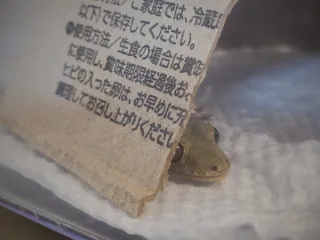 ご家庭では、冷蔵庫
以下)で保存してください。
●使用方法/生食の場合は賞味
に使用し、賞味期限経過後お
ヒビの入った卵は、お早めに充
調理してお召し上がりください